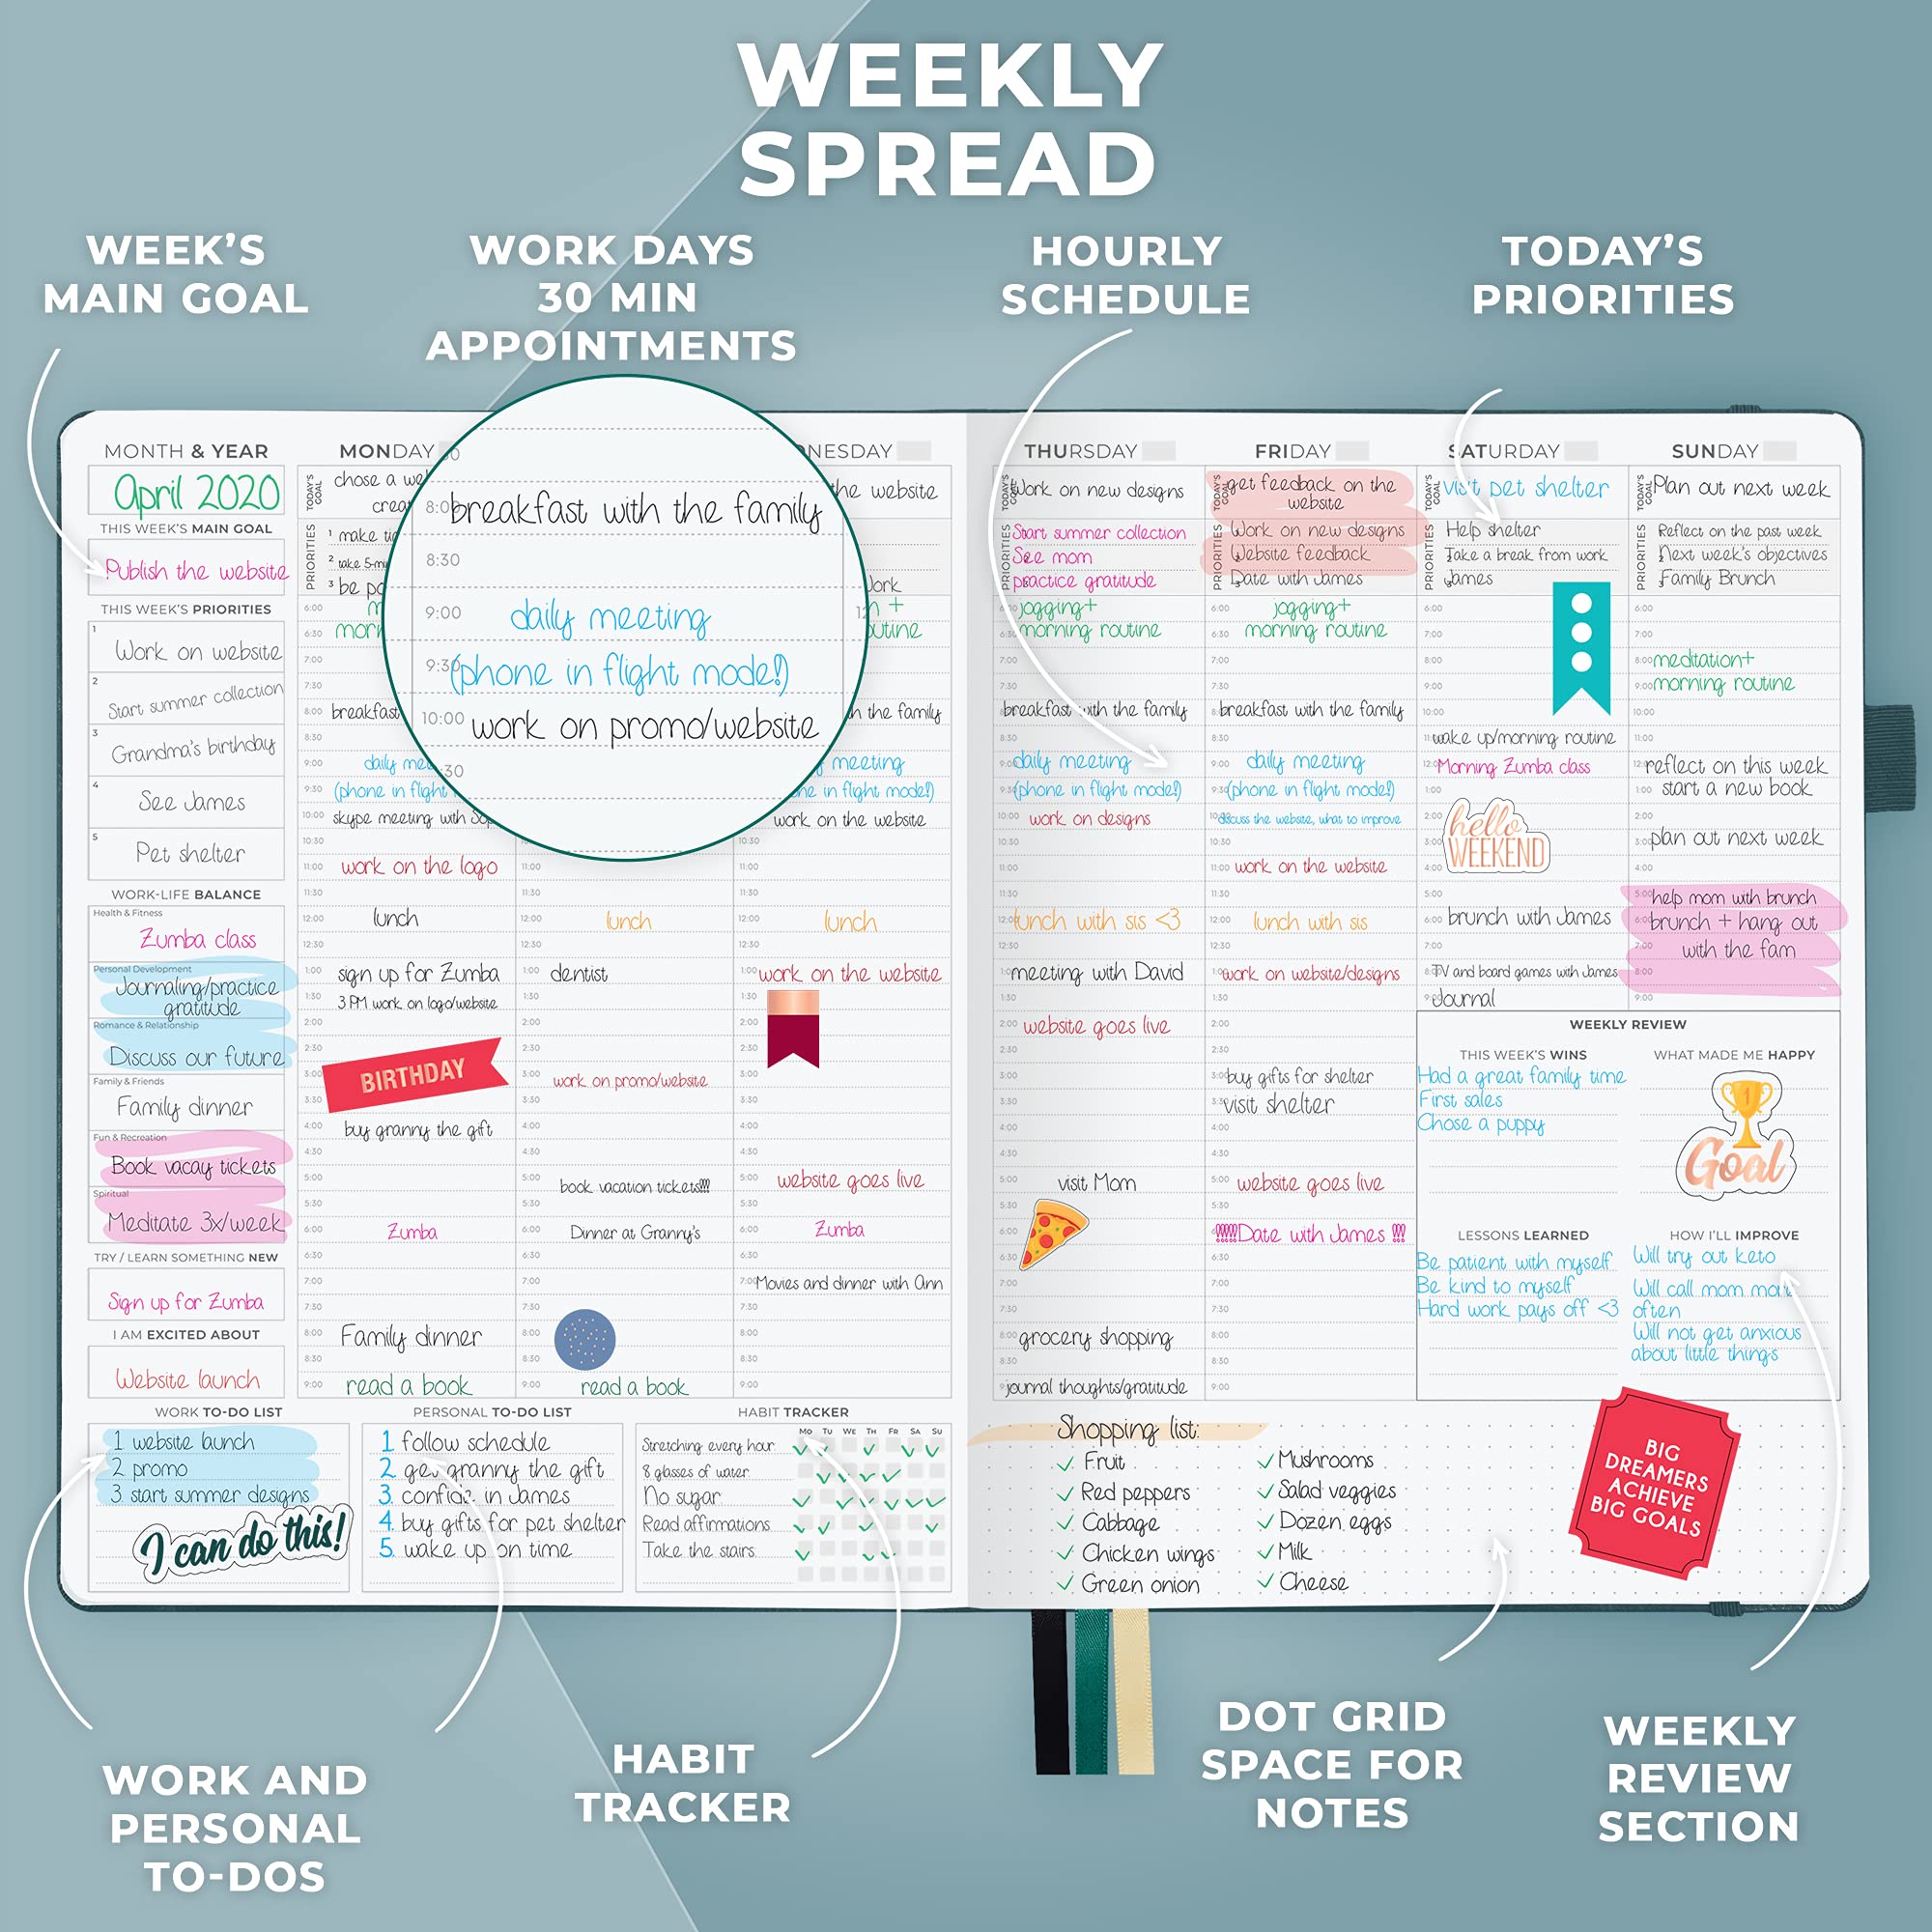 WEEKLY
SPREAD
WEEK'S
MAIN GOAL
WORK DAYS
30 MIN
APPOINTMENTS
HOURLY
SCHEDULE
TODAY'S
PRIORITIES
MONTH & YEAR
April 2020
THIS WEEK'S MAIN GOAL
Publish the website
THIS WEEK'S PRIORITIES
1 Work on website
2 Start summer collection
3 Grandma's birthday
4 See James
5 Pet shelter
WORK-LIFE BALANCE
Health & Fitness
Zumba class
Personal Development
Journaling/practice
gratitude
Romance & Relationship
Discuss our future
Family & Friends
Family dinner
Fun & Recreation
Book vacay tickets
Spiritual
Meditate 3x/week
TRY / LEARN SOMETHING NEW
Sign up for Zumba
I AM EXCITED ABOUT
Website launch
MONDAY
TODAY'S GOAL
chose a
PRIORITIES
1 make
2 take
3 be
6:00
6:30
7:00
7:30
8:00 breakfast
8:30
9:00 daily
9:30 (phone in flight
10:00 skype meeting with
10:30
11:00 work on the logo
11:30
12:00 lunch
12:30
1:00 sign up for Zumba
1:30 3 PM work on logo/website
2:00
2:30
BIRTHDAY
3:00
3:30
4:00 buy granny the gift
4:30
5:00
5:30
6:00 Zumba
6:30
7:00
7:30
8:00 Family dinner
8:30
9:00 read a book
8:00 breakfast with the family
8:30
9:00 daily meeting
9:30 (phone in flight mode!)
10:00 work on promo/website
:30
11:00
11:30
12:00 lunch
12:30
1:00 dentist
1:30
2:00
2:30
3:00 work on promo/website
3:30
4:00
4:30
5:00 book vacation tickets!!!!
5:30
6:00 Dinner at Granny's
6:30
7:00
7:30
8:00
8:30
9:00 read a book
NESDAY
the website
Work
+
routine
the family
meeting
flight mode!)
work on the website
10:30
11:00
11:30
12:00 lunch
12:30
1:00 work on the website
1:30
2:00
2:30
3:00
3:30
4:00
4:30
5:00 website goes live
5:30
6:00 Zumba
6:30
7:00 Movies and dinner with Ann
7:30
8:00
8:30
9:00
THURSDAY
TODAY'S GOAL
Work on new designs
PRIORITIES
Start summer collection
See mom
practice gratitude
6:00 jogging+
6:30 morning routine
7:00
7:30
8:00 breakfast with the family
8:30
9:00 daily meeting
9:30 (phone in flight mode!)
10:00 work on designs
10:30
11:00
11:30
12:00 lunch with sis <3
12:30
1:00 meeting with David
1:30
2:00 website goes live
2:30
3:00
3:30
4:00
4:30
5:00 visit Mom
5:30
6:00
6:30
7:00
7:30
8:00 grocery shopping
8:30
9:00 journal thoughts/gratitude
FRIDAY
TODAY'S GOAL
get feedback on the
website
PRIORITIES
Work on new designs
Website feedback
Date with James
6:00 jogging+
6:30 morning routine
7:00
7:30
8:00 breakfast with the family
8:30
9:00 daily meeting
9:30 (phone in flight mode!)
10:00 discuss the website, what to improve
10:30
11:00 work on the website
11:30
12:00 lunch with sis
12:30
1:00 work on website/designs
1:30
2:00
2:30
3:00 buy gifts for shelter
3:30 visit shelter
4:00
4:30
5:00 website goes live
5:30
6:00 !!!!!Date with James !!!!
6:30
7:00
7:30
8:00
8:30
9:00
SATURDAY
TODAY'S GOAL
visit pet shelter
PRIORITIES
1 Help shelter
2 Take a break from work
3 James
6:00
7:00
8:00
9:00
10:00
11:00 wake up/morning routine
12:00 Morning Zumba class
1:00
2:00
3:00
4:00
hello
WEEKEND
5:00
6:00 brunch with James
7:00
8:00 TV and board games with James
9:00 Journal
SUNDAY
TODAY'S GOAL
Plan out next week
PRIORITIES
Reflect on the past week
Next week's objectives
Family Brunch
6:00
7:00
8:00 meditation+
9:00 morning routine
10:00
11:00
12:00 reflect on this week
1:00 start a new book
2:00
3:00 plan out next week
4:00
5:00 help mom with brunch
6:00 brunch + hang out
7:00 with the fam
8:00
9:00
WEEKLY REVIEW
THIS WEEK'S WINS
Had a great family time
First sales
Chose a puppy
WHAT MADE ME HAPPY
1
Goal
LESSONS LEARNED
Be patient with myself
Be kind to myself
Hard work pays off <3
HOW I'LL IMPROVE
Will try out keto
Will call mom more
often
Will not get anxious
about little things
WORK TO-DO LIST
1. website launch
2. promo
3. start summer designs
I can do this!
PERSONAL TO-DO LIST
1. follow schedule
2. get granny the gift
3. confide in James
4. buy gifts for pet shelter
5. wake up on time
HABIT TRACKER
Mo Tu We Th Fr Sa Su
Stretching every hour
8 glasses of water
No sugar
Read affirmations
Take the stairs
Shopping list:
✓ Fruit
✓ Red peppers
✓ Cabbage
✓ Chicken wings
✓ Green onion
✓ Mushrooms
✓ Salad veggies
✓ Dozen eggs
✓ Milk
✓ Cheese
BIG
DREAMERS
ACHIEVE
BIG GOALS
WORK AND
PERSONAL
TO-DOS
HABIT
TRACKER
DOT GRID
SPACE FOR
NOTES
WEEKLY
REVIEW
SECTION